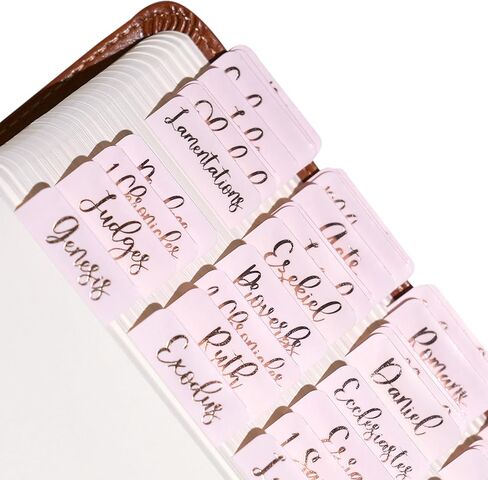 Genesis
Judges
1 Chronicles
Lamentations
Exodus
Ruth
2 Chronicles
Proverbs
Ezekiel
Acts
Ecclesiastes
Daniel
Romans